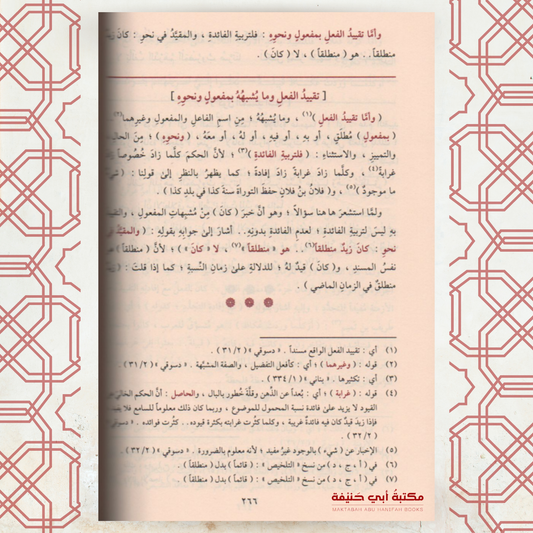 وأمَّا تقييدُ الفعلِ بمفعولٍ ونحوِهِ : فلتربيةِ الفائدةِ ، والمقيَّدُ في نحوِ : كانَ زيدٌ
منطلقاً .. هو ( منطلقاً ) ، لا ( كانَ ) .
[ تقييدُ الفعلِ وما يُشبهُهُ بمفعولٍ ونحوِهِ ]
( وأمَّا تقييدُ الفعلِ )(١) ، وما يُشبهُهُ ؛ مِنِ اسمِ الفاعلِ والمفعولِ وغيرِهما(٢) ..
( بمفعولٍ ) مُطلَقٍ ، أو بهِ ، أو فيهِ ، أو لهُ ، أو معَهُ ، ( ونحوِهِ ) ؛ مِنَ الحالِ
والتمييزِ ، والاستثناءِ : ( فلتربيةِ الفائدةِ )(٣) ؛ لأنَّ الحكمَ كلَّما زادَ خُصُوصاً زادَ
غرابةً(٤) ، وكلَّما زادَ غرابةً زادَ إفادةً ؛ كما يظهرُ بالنظرِ إلى قولِنا : ( شيءٌ
ما موجودٌ )(٥) ، و( فلانُ بنُ فلانٍ حفظَ التوراةَ سنةَ كذا في بلدِ كذا ) .
ولمَّا استشعرَ ها هنا سؤالاً ؛ وهو أنَّ خبرَ ( كانَ ) مِنْ مُشبِهاتِ المفعولِ ، والتقييدُ
بهِ ليسَ لتربيةِ الفائدةِ ؛ لعدمِ الفائدةِ بدونِهِ .. أشارَ إلى جوابِهِ بقولِهِ : ( والمقيَّدُ في
نحوِ : كانَ زيدٌ منطلقاً(٦) .. هو « منطلقاً »(٧) ، لا « كانَ » ) ؛ لأنَّ ( منطلقاً ) هو
نفسُ المسندِ ، و( كانَ ) قيدٌ لهُ ؛ للدلالةِ على زمانِ النِّسبةِ ؛ كما إذا قلتَ : ( زيدٌ
منطلقٌ في الزمانِ الماضي ) .
(١) أي : تقييد الفعل الواقع مسنداً . « دسوقي » ( ٣١/٢ ) .
(٢) قوله : ( وغيرهما ) ؛ أي : كأفعل التفضيل ، والصفة المشبَّهة . « دسوقي » ( ٣١/٢ ) .
(٣) أي : تكثيرها . « بناني » ( ٣٣٤/١ ) .
(٤) قوله : ( غرابة ) ؛ أي : بُعداً عن الذِّهن وقلَّةَ خُطورٍ بالبال ، والحاصل : أنَّ الحكم الخالي عن
القيود لا يزيد على فائدة نسبة المحمول للموضوع ، وربما كان ذلك معلوماً للسامع فلا يفيد
فإذا زيدَ قيدٌ كان فيه فائدةٌ غريبة ، وكلما كثُرت غرابته بكثرة قيوده .. كثُرت فوائده . « دسوقي »
( ٣٢/٢ ) .
(٥) الإخبار عن ( شيء ) بالوجود غيرُ مفيد ؛ لأنه معلوم بالضرورة . « دسوقي » ( ٣٢/٢ ) .
(٦) في ( أ ، ج ، د ) من نسخ « التلخيص » : ( قائماً ) بدل ( منطلقاً ) .
(٧) في ( أ ، ج ، د ) من نسخ « التلخيص » : ( قائماً ) بدل ( منطلقاً )
٢٦٦
مكتبة أبي حنيفة
MAKTABAH ABU HANIFAH BOOKS